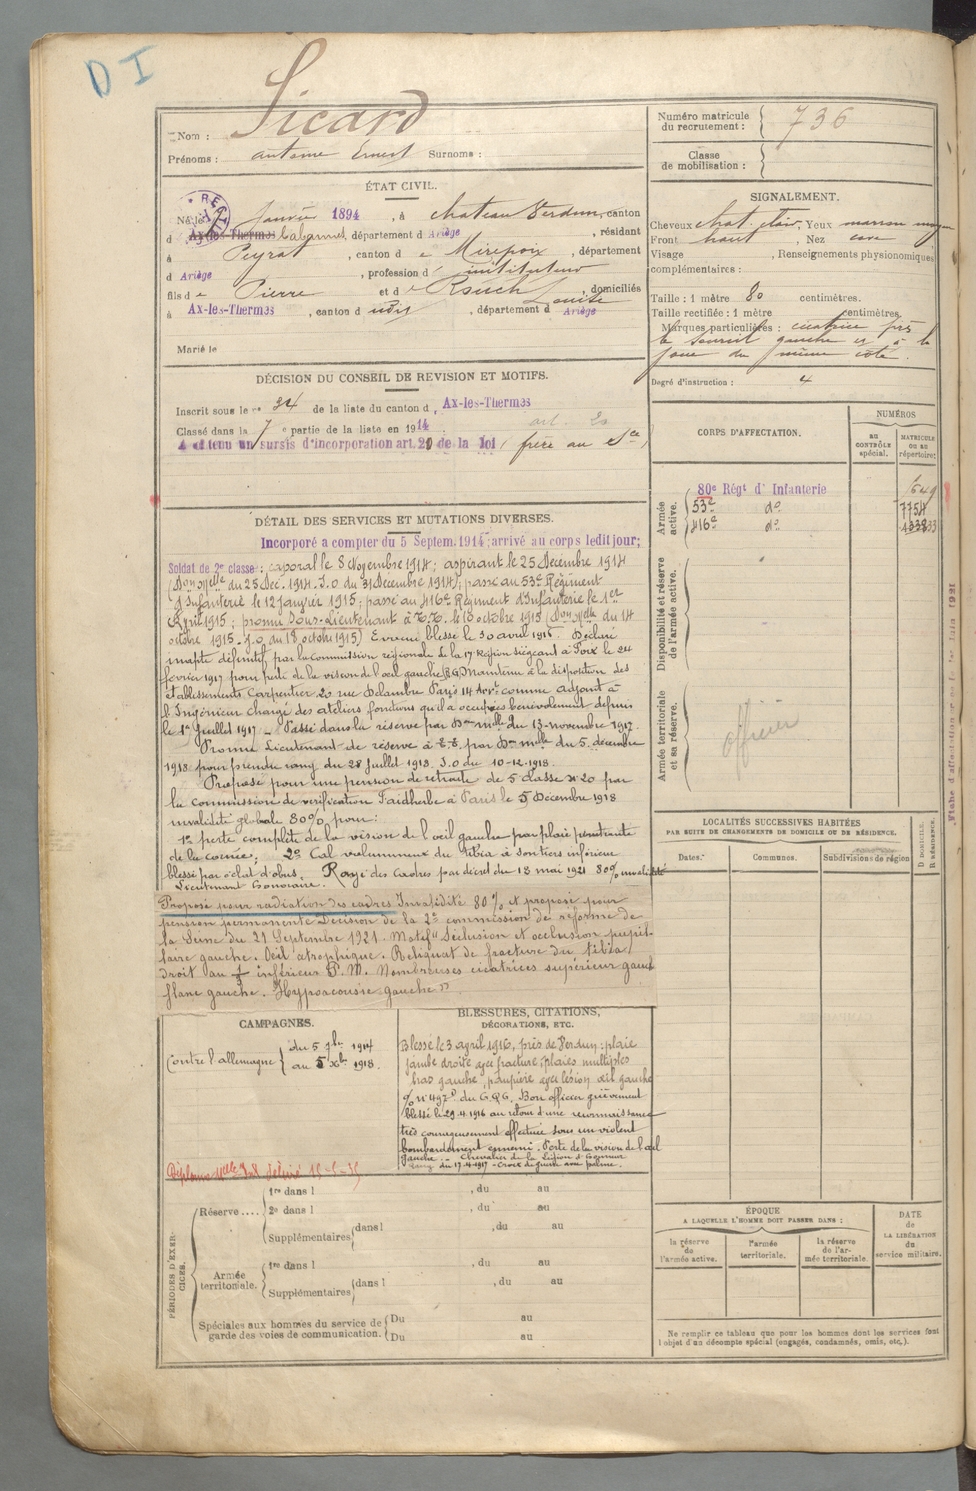 D I
Nom : Sicard
Prénoms : antoine Ernest Surnoms :
Numéro matricule du recrutement : 736
Classe de mobilisation :
ÉTAT CIVIL.
Né le Janvier 1894, à chateau Verdun, canton
d Ax-les-Thermes Cabannes, département d Ariège, résidant
à Peyrat, canton d e Mirepoix, département
d Ariège, profession d' instituteur
fils de Pierre et d e Rouch Louise, domiciliés
à Ax-les-Thermes, canton d udis, département d Ariège
Marié le
SIGNALEMENT.
Cheveux chat. clair, Yeux marron moyen
Front haut, Nez cave
Visage , Renseignements physionomiques
complémentaires :
Taille : 1 mètre 80 centimètres.
Taille rectifiée : 1 mètre centimètres.
Marques particulières : cicatrice près
le sourcil gauche et à la
joue du même côté.
Degré d'instruction : 4
DÉCISION DU CONSEIL DE REVISION ET MOTIFS.
Inscrit sous le n° 34 de la liste du canton d Ax-les-Thermes
Classé dans la 7e partie de la liste en 1914 art. 20
A obtenu un sursis d'incorporation art. 20 de la loi (frère au Sce)
CORPS D'AFFECTATION.
NUMÉROS
au CONTRÔLE spécial.
MATRICULE OU AU répertoire.
Armée active.
80e Régt d' Infanterie 1649
53e do 7754
416e do
Disponibilité et réserve de l'armée active.
Armée territoriale et sa réserve.
officier
DÉTAIL DES SERVICES ET MUTATIONS DIVERSES.
Incorporé a compter du 5 Septem. 1914; arrivé au corps ledit jour;
Soldat de 2e classe; caporal le 8 Novembre 1914; aspirant le 25 Décembre 1914
(Don Mlle du 25 Déc. 1914. J.O du 31 Décembre 1914); passé au 53e Régiment
d'Infanterie le 12 janvier 1915; passé au 416e Régiment d'Infanterie le 1er
Avril 1915; promu Sous-Lieutenant à T.T. le 10 octobre 1915 (Don Mlle du 14
octobre 1915 - J.O. du 18 octobre 1915) Evacué blessé le 30 avril 1916. Déclaré
inapte définitif par la commission régionale de la 17e Région siégeant à Foix le 24
février 1917 pour perte de la vision de l'oeil gauche, (R.G) Maintenu à la disposition des
établissements Carpentier 20 rue Delambre Paris 14 Arrt comme adjoint à
l'Ingénieur chargé des ateliers, fonctions qu'il a occupées bénévolement depuis
le 1er Juillet 1917 - Passé dans la réserve par Don mlle du 13 novembre 1917
Promu Lieutenant de réserve à T.T. par Don mlle du 5 décembre
1918 pour prendre rang du 28 Juillet 1918. J.O du 10-12-1918.
Proposé pour une pension de retraite de 5 classe n° 20 par
la commission de vérification Faidherbe à Paris le 5 Décembre 1918
invalidité globale 80% pour :
1° perte complète de la vision de l'oeil gauche par plaie pénétrante
de la cornée; 2° Cal volumineux du tibia à son tiers inférieur
blessé par éclat d'obus. Rayé des Cadres par décret du 13 mai 1921 80% invalidité
Lieutenant honoraire.
Proposé pour radiation des cadres Invalidité 80% et proposé pour
pension permanente Décision de la 2e commission de réforme de
la Seine du 21 Septembre 1921. Motifs Séclusion et occlusion pupil-
laire gauche. Oeil atrophique. Reliquat de fracture du tibia
droit au inférieur P.M. Nombreuses cicatrices supérieur gauch
flanc gauche. Hypoacousie gauche"
LOCALITÉS SUCCESSIVES HABITÉES
PAR SUITE DE CHANGEMENTS DE DOMICILE OU DE RÉSIDENCE.
Dates. Communes. Subdivisions de région D DOMICILE. R RÉSIDENCE.
CAMPAGNES.
Contre l'allemagne
du 5 7bre 1914
au 5 Xbre 1918.
BLESSURES, CITATIONS,
DÉCORATIONS, ETC.
Blessé le 3 avril 1916, près de Verdun: plaie
jambe droite avec fracture, plaies multiples
bras gauche, paupière avec lésion oeil gauche
du G.Q.G. Bon officier grièvement
blessé le 29.4.1916 au retour d'une reconnaissance
très courageusement effectuée sous un violent
bombardement ennemi. Perte de la vision de l'oeil
gauche. - Chevalier de la Légion d'honneur
rang du 17.4.1917 - Croix de guerre avec palme.
PÉRIODES D'EXERCICES.
Réserve .... 1re dans l , du au
2e dans l , du au
Supplémentaires dans l , du au
Armée territoriale. 1re dans l , du au
Supplémentaires dans l , du au
Spéciales aux hommes du service de garde des voies de communication. Du au
Du au
ÉPOQUE
A LAQUELLE L'HOMME DOIT PASSER DANS :
la réserve de l'armée active.
l'armée territoriale.
la réserve de l'armée territoriale.
DATE de LA LIBÉRATION du service militaire.
Ne remplir ce tableau que pour les hommes dont les services font
l'objet d'un décompte spécial (engagés, condamnés, omis, etc.).